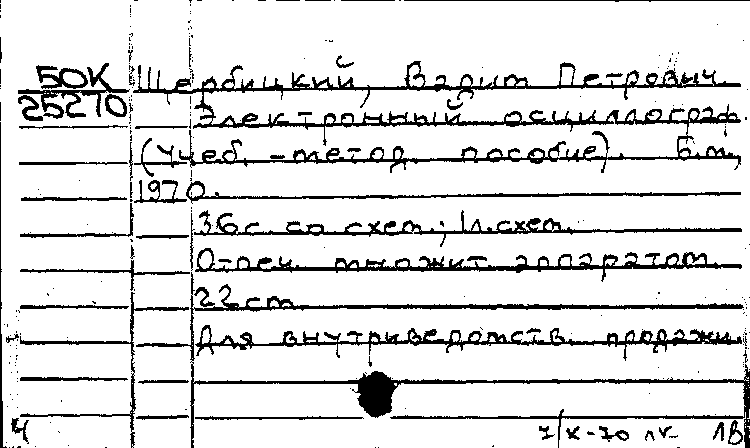 БОК Щербицкий, Вадим Петрович.
25270 Электронный осциллограф.
(Учеб.-метод. пособие). Б.м.,
1970.
36 с. со схем.; 1 л. схем.
Отпеч. множит. аппаратом.
22 см.
Для внутриведомств. продажи.
Ч 1/X-70 ЛВ